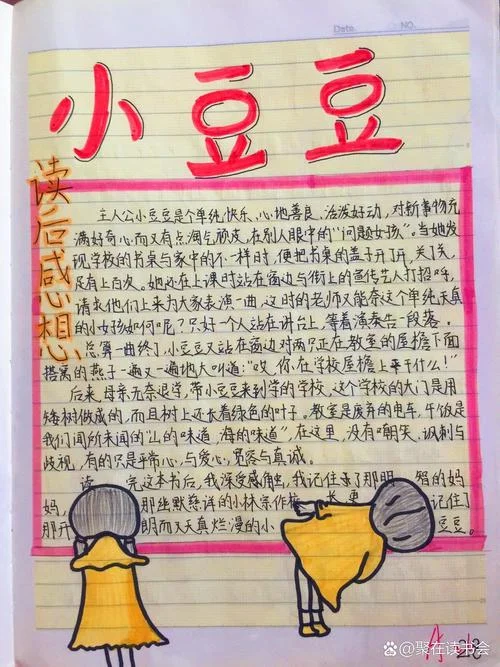 Date.
NO.
小豆豆
读后感想
主人公小豆豆是个单纯、快乐、心地善良、活泼好动，对新事物充
满好奇心而又有点淘气顽皮，在别人眼中的“问题女孩”。当她发
现学校的书桌与家中的不一样时，便把书桌的盖子开了开，关了关，
足有上百次。她还在上课时站在窗边与街上的宣传艺人打招呼，
请求他们上来为大家表演一曲，这时的老师又能奈这个单纯天真
的小女孩如何呢？只好一个人站在讲台上，等着演奏告一段落。
总算一曲终了，小豆豆又站在窗边对两只正在教室的屋檐下面
搭窝的燕子一遍又一遍地大叫道：“哎，你在学校屋檐上干什么！”
后来，母亲无奈退学，带小豆豆来到学的学校，这个学校的大门是用
矮树做成的，而且树上还长着绿色的叶子。教室是废弃的电车，午饭是
我们闻所未闻的“山的味道，海的味道”，在这里，没有嘲笑、讽刺与
歧视，有的只是平常心，与爱心，宽容与真诚。
读 完这本书后，我深受感触，我记住了那明 智的妈
妈， 那幽默慈祥的小林宗作校 长，更 记住了
那开 朗而又天真烂漫的小 豆豆。
@聚在读书会